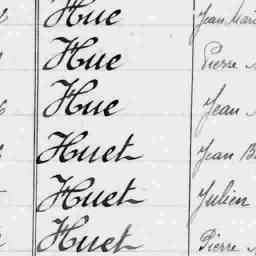 Huc Jean Mari
Huc Pierre
Huc Jean
Huet Jean B
Huet Julien
Huet Pierre